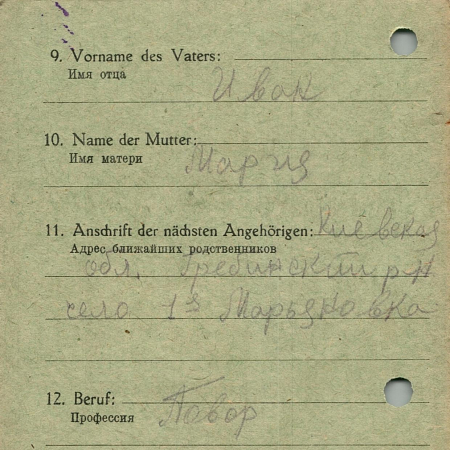 9. Vorname des Vaters:
Имя отца
Иван
10. Name der Mutter:
Имя матери
Мария
11. Anschrift der nächsten Angehörigen: Киевская
Адрес ближайших родственников
обл. Гребинский р-н
село 1я Марьяновка
12. Beruf:
Профессия
Повор